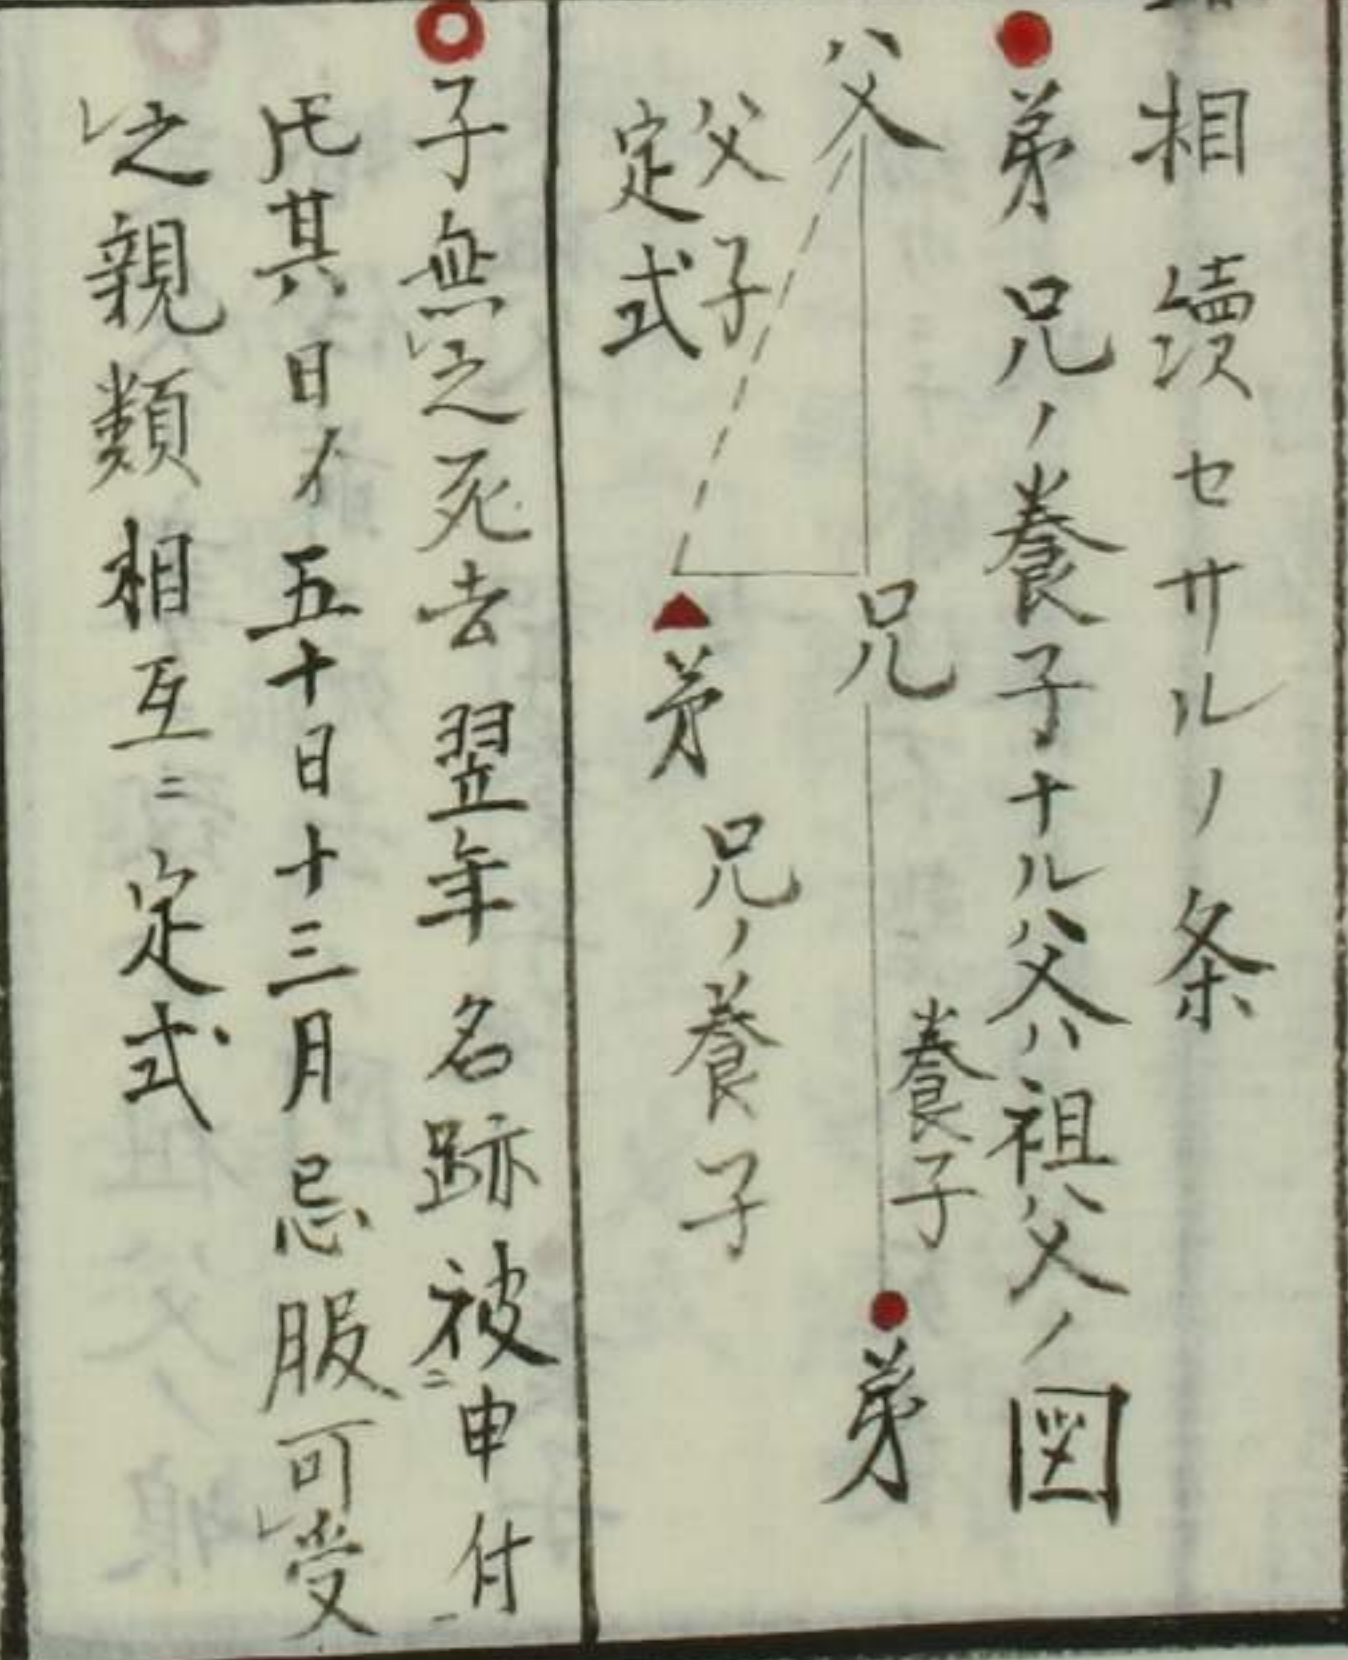 相續セサルノ条
弟兄ノ養子ナル父ハ祖父ノ図
父
兄
養子
弟
父子
定式
弟
兄ノ養子
子無レ之死去翌年名跡被ニ申付一
厇其日ゟ五十日十三月忌服可レ受
レ之親類相互ニ定式